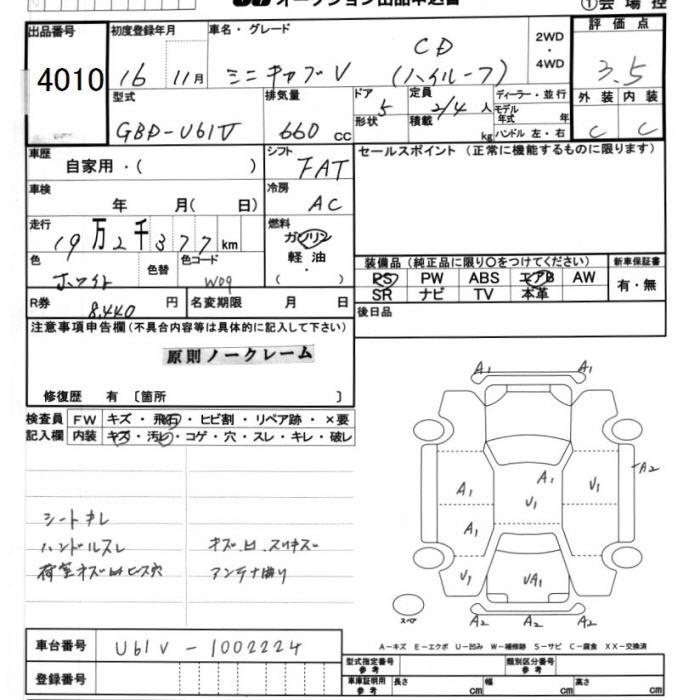 オークション出品申込書
①会場控
出品番号 初度登録年月 車名・グレード 2WD ・ 4WD 評価点
4010 16 11月 ミニキャブV CD (ハイルーフ) 3.5
型式 排気量 ドア 5 形状 定員 2/4 人 積載 kg ディーラー・並行 モデル年式 年 ハンドル 左・右 外装 内装
GBD-U61V 660 CC C C
車歴 自家用・( ) シフト FAT セールスポイント (正常に機能するものに限ります)
車検 年 月( 日) 冷房 AC
走行 19万2千377km 燃料 ガソリン 軽油 ( )
色 ホワイト 色替 色コード W09
装備品 (純正品に限り〇をつけてください) 新車保証書
PS PW ABS エアB AW 有・無
SR ナビ TV 本革
R券 8,440 円 名変期限 月 日 後日品
注意事項申告欄 (不具合内容等は具体的に記入して下さい)
原則ノークレーム
修復歴 有 〔箇所 〕
検査員 FW キズ・飛石・ヒビ割・リペア跡・×要
記入欄 内装 キズ・汚レ・コゲ・穴・スレ・キレ・破レ
シートキレ
ハンドルスレ キズ.凹.スリキズ
荷室キズ凹ビス穴 アンテナ曲り
A1 A1
A2
A1 A1 U1 U1
A1
U1 UA1
A2 A2 A2
スペア
A-キズ E-エクボ U-凹み W-補修跡 S-サビ C-腐食 XX-交換済
車台番号 U61V-1002224
型式指定番号 参考 類別区分番号 参考
登録番号 車庫証明用 参考 長さ cm 幅 cm 高さ cm